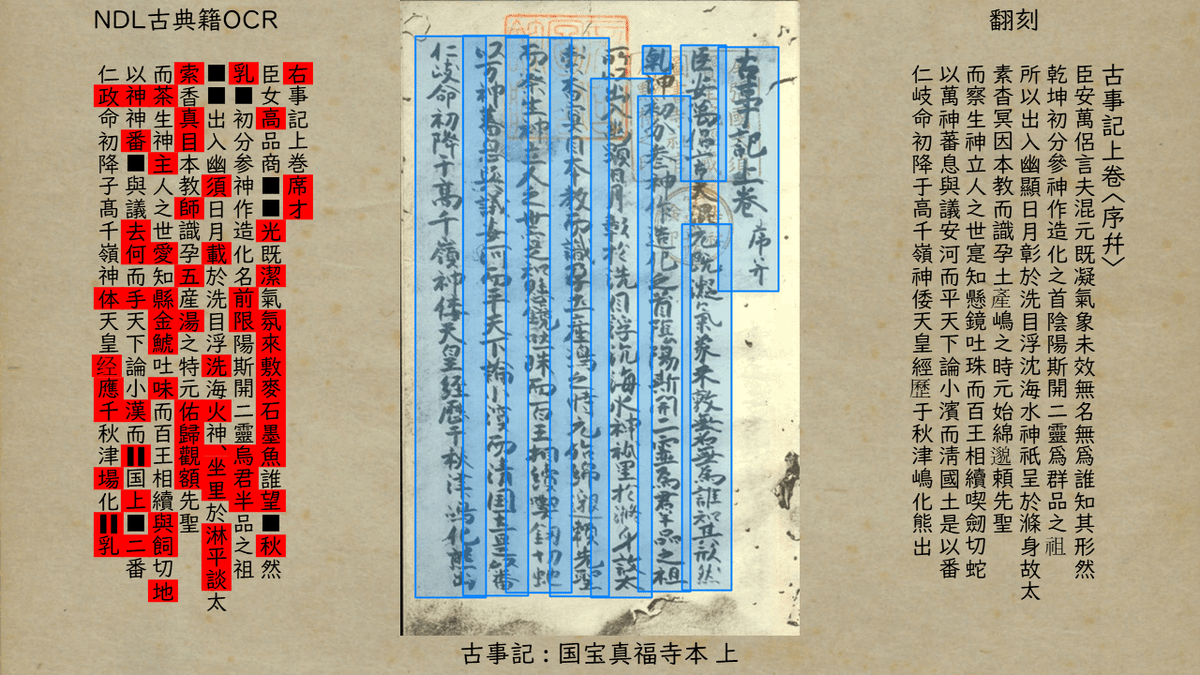 NDL古典籍OCR
右事記上巻席才
臣女高品商■■光既潔氣氛來敷麥石墨魚誰望■秋然
乳■初分参神作造化名前限陽斯開二靈烏君半品之祖
■■出入幽須日月載於洗目浮洗海火神、坐里於淋平談太
索香真目本教師識孕五産湯之特元佑歸觀額先聖
而茶生神主人之世愛知縣金鯱吐味而百王相續與飼切地
以神神番■與議去何而手天下論小漢而〓国上■二番
仁政命初降子髙千嶺神体天皇经應千秋津場化〓乳
古事記上巻 序并
乾坤初分参神作造化之首陰陽斯開二霊為群品之祖
仁岐命初降于高千嶺神倭天皇経歴于秋津嶋化熊出
古事記：国宝真福寺本 上
翻刻
古事記上卷〈序幷〉
臣安萬侶言夫混元既凝氣象未效無名無爲誰知其形然
乾坤初分參神作造化之首陰陽斯開二靈爲群品之祖
所以出入幽顯日月彰於洗目浮沈海水神祇呈於滌身故太
素杳冥因本教而識孕土產嶋之時元始綿邈頼先聖
而察生神立人之世寔知懸鏡吐珠而百王相續喫劒切蛇
以萬神蕃息與議安河而平天下論小濱而淸國土是以番
仁岐命初降于高千嶺神倭天皇經歷于秋津嶋化熊出